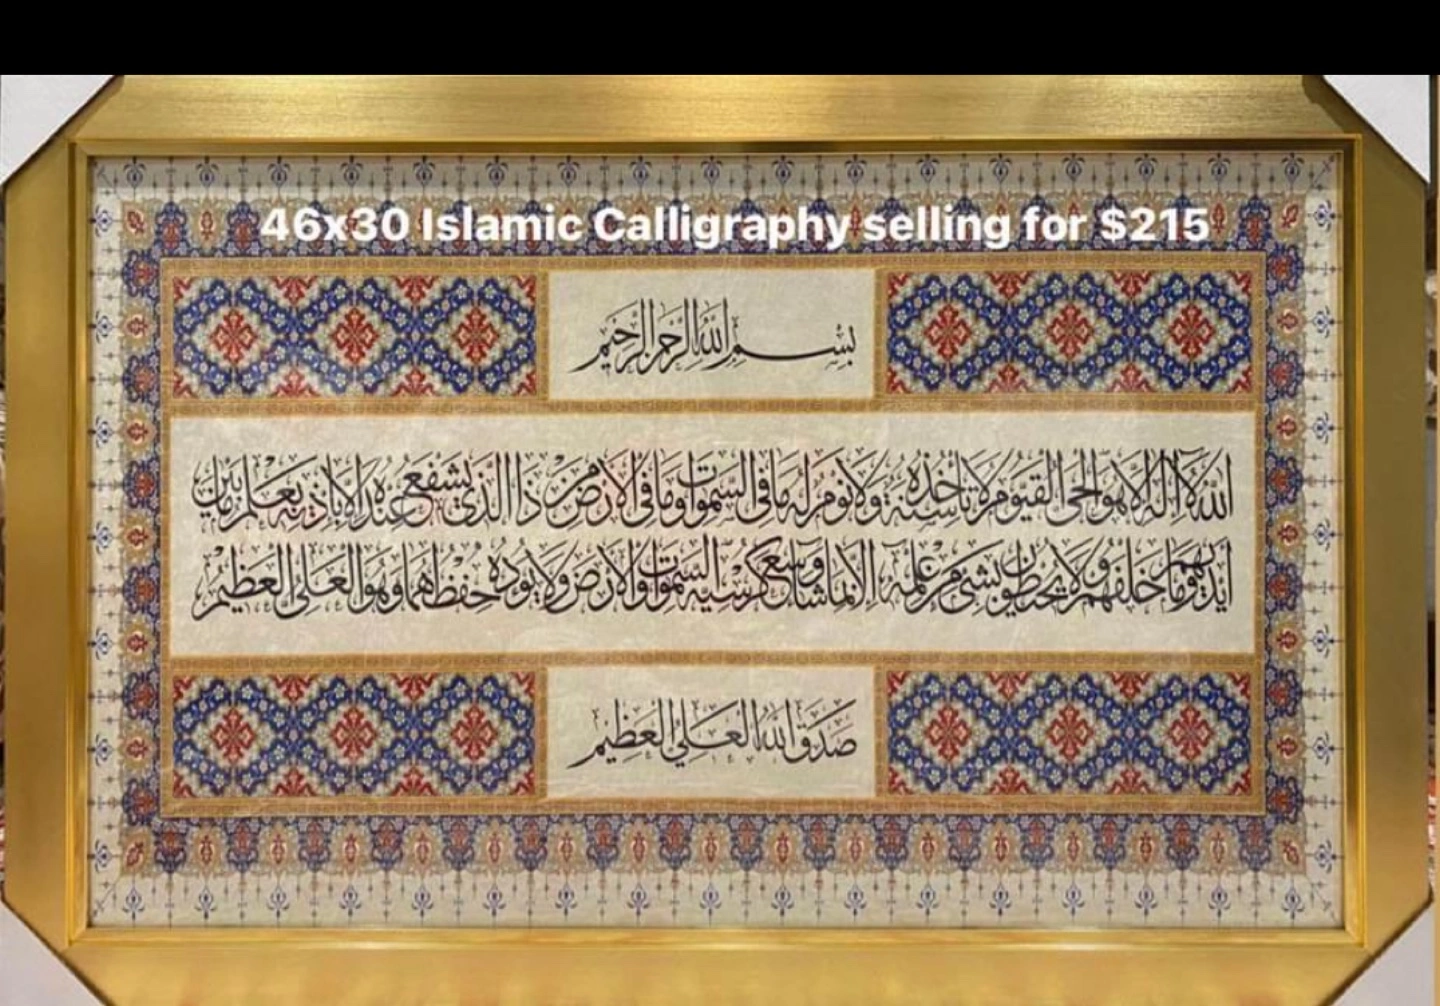 46x30 Islamic Calligraphy selling for $215
بسم الله الرحمن الرحيم
الله لا اله الا هو الحي القيوم لا تأخذه سنة ولا نوم له ما في السموات وما في الارض من ذا الذي يشفع عنده الا باذنه يعلم ما بين
ايديهم وما خلفهم ولا يحيطون بشئ من علمه الا بما شاء وسع كرسيه السموات والارض ولا يؤده حفظهما وهو العلي العظيم
صدق الله العلي العظيم